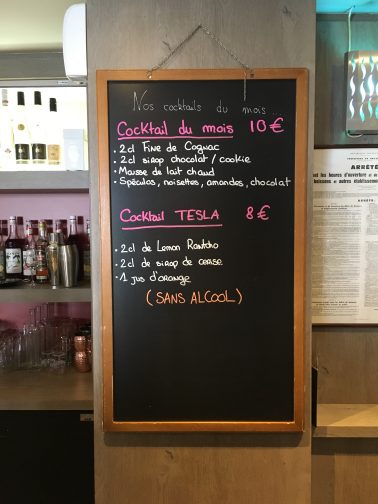 Nos cocktails du mois ...
Cocktail du mois 10€
• 2cl Fine de Cognac
• 2cl sirop chocolat / cookie
• Mousse de lait chaud
• Spéculos, noisettes, amandes, chocolat
Cocktail TESLA 8€
• 2cl de Lemon Rantcho
• 2cl de sirop de cerise
• 1 jus d'orange
(SANS ALCOOL)
ARRÊTÉ